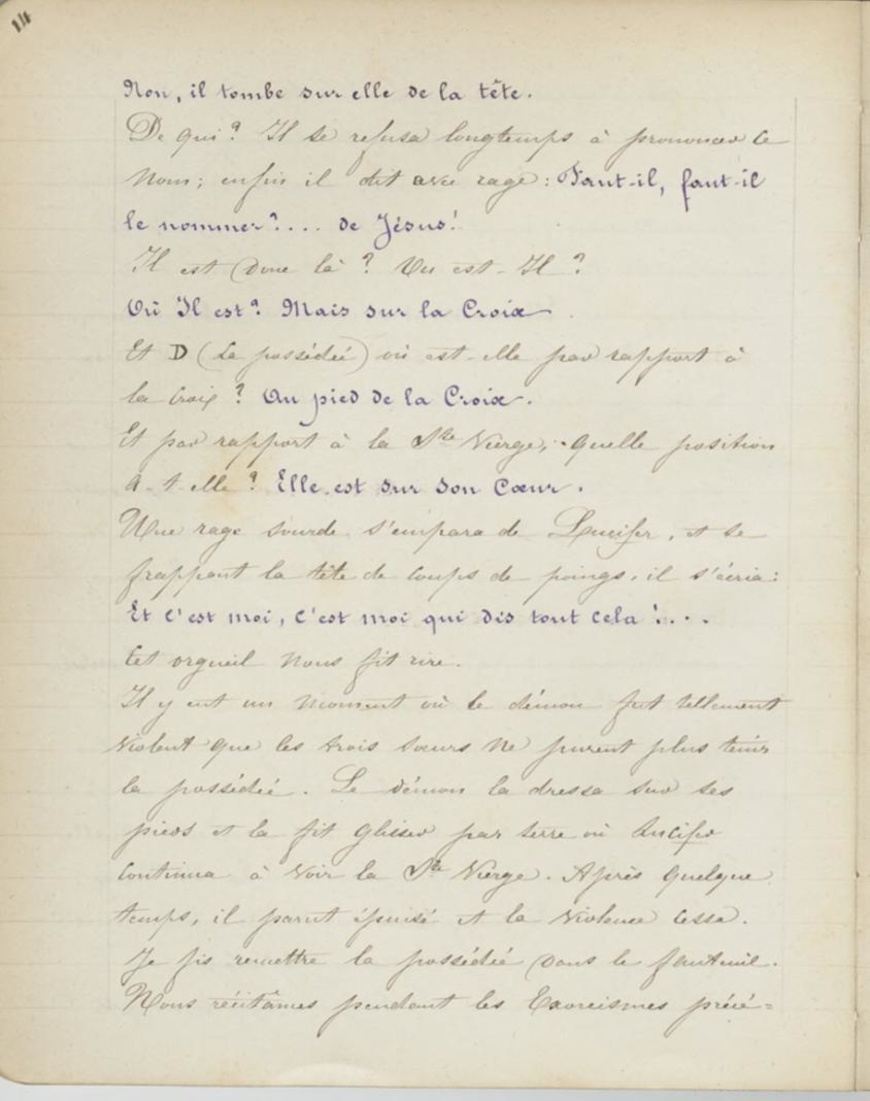 14
Non, il tombe sur elle de la tête.
De qui? Il se refusa longtemps à prononcer ce
nom; enfin il dit avec rage: Faut-il, faut-il
le nommer?... de Jésus!
Il est donc là? Où est-Il?
Où Il est? Mais sur la Croix.
Et D (la possédée) où est-elle par rapport à
la Croix? Au pied de la Croix.
Et par rapport à la Ste Vierge, quelle position
a-t-elle? Elle est sur son Cœur.
Une rage sourde s'empara de Lucifer, et se
frappant la tête de coups de poings, il s'écria:
Et c'est moi, c'est moi qui dis tout cela!...
Cet orgueil nous fit rire.
Il y eut un moment où le démon fut tellement
violent que les trois sœurs ne purent plus tenir
la possédée. Le démon la dressa sur ses
pieds et la fit glisser par terre où Lucifer
continua à voir la Ste Vierge. Après quelque
temps, il parut épuisé et la violence cessa.
Je fis remettre la possédée dans le fauteuil.
Nous récitâmes pendant les Exorcismes précé=